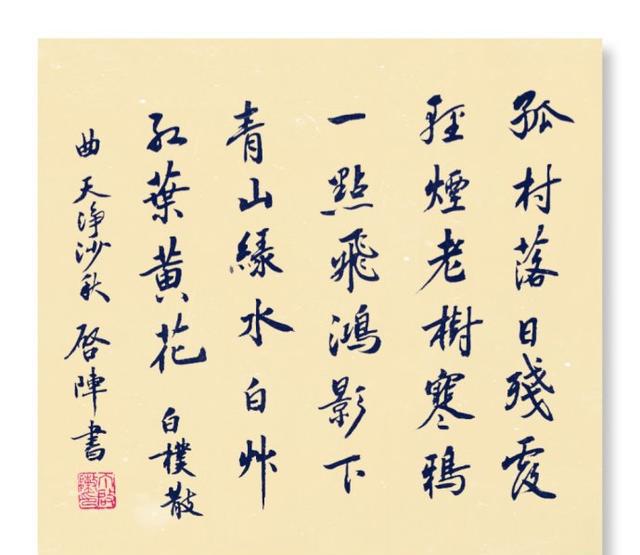 孤村落日殘霞
輕煙老樹寒鴉
一點飛鴻影下
青山綠水白艸
紅葉黃花 白樸散
曲 天淨沙秋 啓陣書